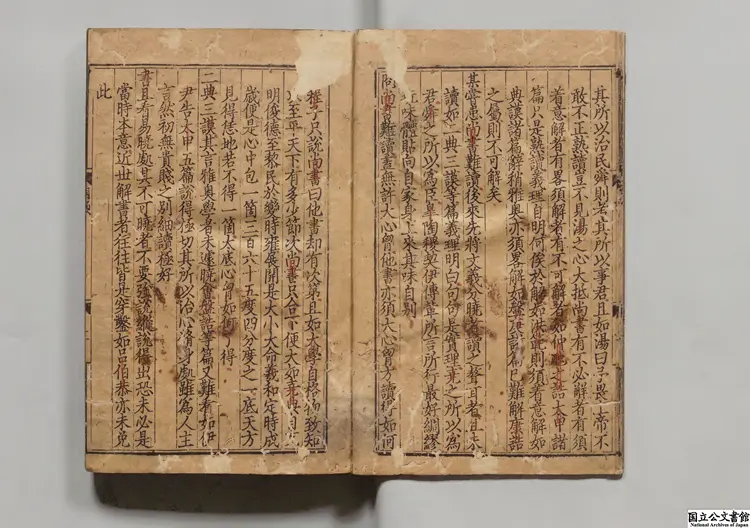 其所以治民齊則考其所以事君且如湯曰予畏上帝不
敢不正熟讀豈不見湯之心大抵尚書有不必解者有須
着意解者有畧須解者有不可解者如仲虺之誥太甲諸
篇只是熟讀義理自明何俟於解如洪範則須着意解如
典謨諸篇辭稍雅奥亦須畧解如盤庚諸篇已難解康誥
之屬則不可解矣
某嘗患尚書難讀後來先將文義分曉者讀之聱耳者且未
讀如二典三謨等篇義理明白句句是實理堯之所以為
君舜之所以為臣皐陶稷契伊傅輩所言所行最好紬繹
玩味體貼向自家身上來其味自別
問尚書難讀蓋無許大心胷他書亦須大心胷方讀得如何
程子只說尚書曰他書却有次第且如大學自格物致知
以至平天下有多少節次尚書只合下便大如堯典自克
明俊德至黎民於變時雍展開是大小大命羲和定時成
歲便是心中包一箇三百六十五度四分度之一底天方
見得恁地若不得一箇大底心胷如何了得
二典三謨其言雅奥學者未遽曉會盤誥等篇又難看如伊
尹告太甲五篇說得極切其所以治心脩身處雖為人主
言然初無貴賤之別細讀極好
書且看易曉處其不可曉者不要強說縱說得出恐未必是
當時本意近世解書者往往皆是穿鑿如呂伯恭亦未免
此
国立公文書館
National Archives of Japan